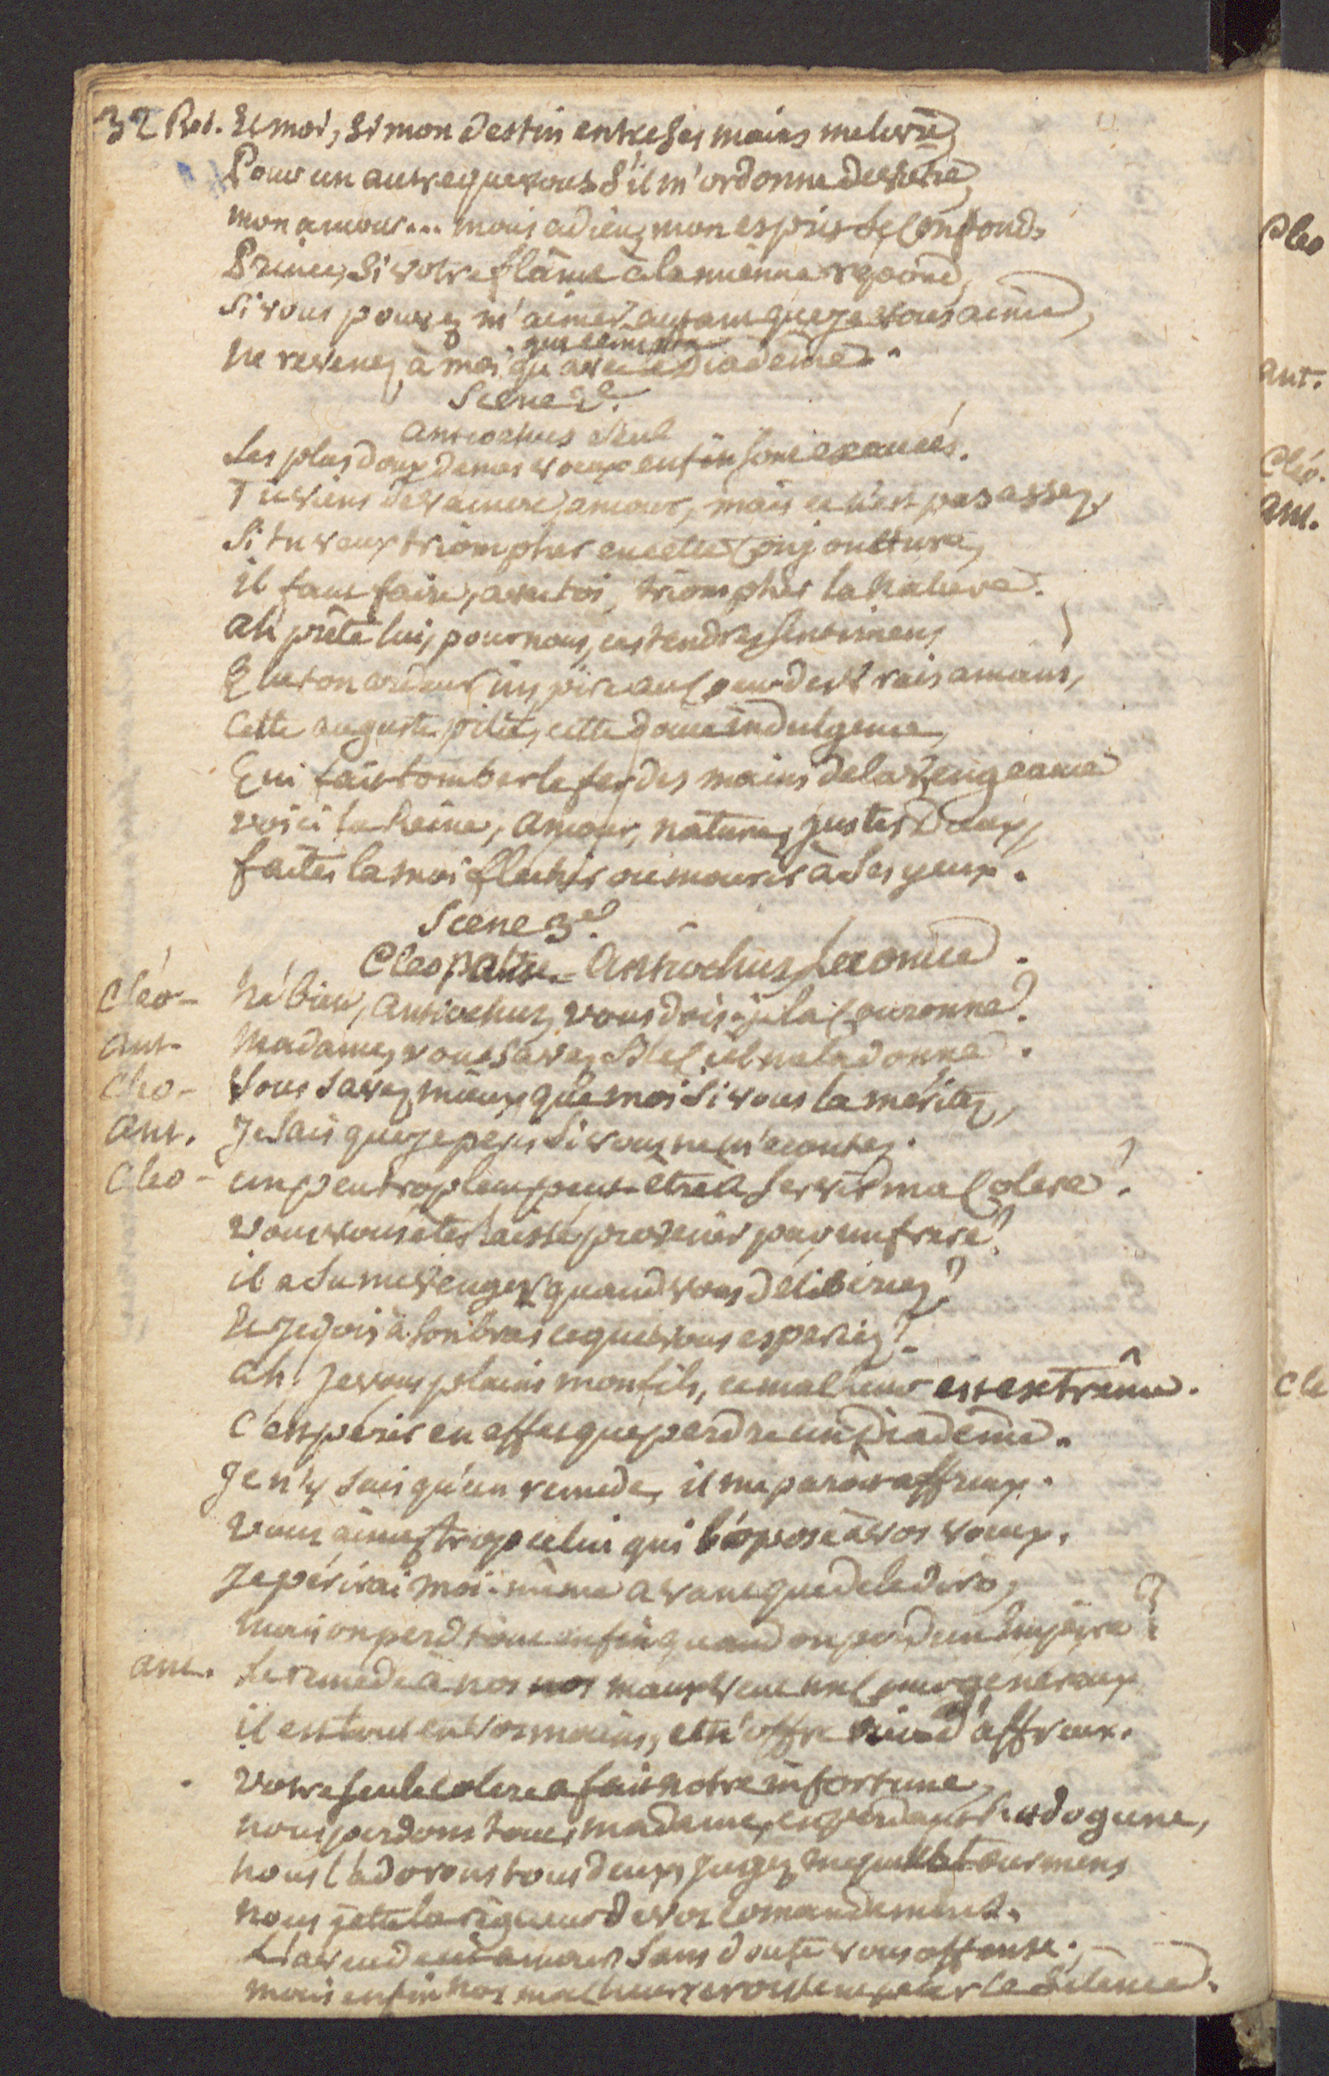 32 Rod. Et moi, si mon destin entre ses mains me livre,
Pour un autre que vous s'il m'ordonne de vivre,
mon amour... mais adieu, mon esprit se confond.
Prince, si votre flâme à la mienne répond,
Si vous pouvez m'aimer autant que je vous aime,
ne revenez à moi qu'avec le Diademe.
Scene 2e.
Antiochus seul
Les plus doux de nos voeux enfin sont exaucés.
Tu viens de vaincre, amour, mais ce n'est pas assez,
Si tu veux triompher en cette conjoncture,
il faut faire, avec toi, triompher la nature.
ah prête lui, pour nous, ces tendres sentimens
Que ton ardeur inspire au coeur des vrais amans,
Cette auguste pitié, cette douce indulgence,
Qui fait tomber le fer des mains de la vengeance
voici la Reine, amour, nature, justes Dieux,
faites la moi flechir ou mourir à ses yeux.
Scene 3e.
Cleopatre - Antiochus, Laonice.
Cléo - hé bien, Antiochus, vous dois-je la couronne?
Ant. Madame, vous savez si le ciel me la donne.
Cléo - Vous savez mieux que moi si vous la méritez,
Ant. Je sais que je péris si vous ne m'ecoutez.
Cleo - un peu trop lent peut-etre a servir ma colere?
vous vous êtes laissé prevenir par un frere?
il a su me venger quand vous délibériez?
Et je dois à son bras ce que vous esperiez?
ah. Je vous plains mon fils, ce malheur est extrême.
C'est perir en effet que perdre un Diadême.
Je n'y sais qu'un remede, il me paroit affreux.
vous aimez trop celui qui s'opose à vos voeux.
Je périrai moi-même avant que de le dire,
mais on perd tout enfin quand on perd un Empire?
ant. Le remede à nos nos maux veut un coeur genereux
il est tout en vos mains, et n'offre rien d'affreux.
Votre seule colere a fait notre infortune,
nous perdons tout, madame, en perdant Rodogune,
nous l'adorons tous deux, jugez en quels tourmens
nous jette la rigueur de vos comandemens.
L'aveu de cet amour sans doute vous offense,
mais enfin nos malheurs croissent par le silence.
Cleo
ant.
Cléo.
ant.
Cle